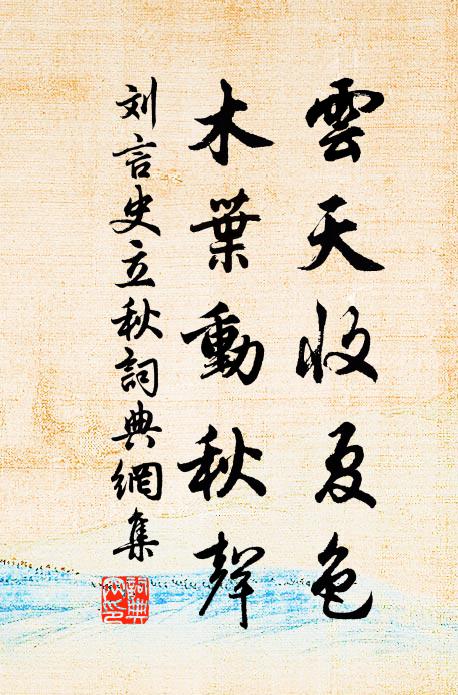 雲天收夏色
木葉動秋聲
刘言史立秋詞典網集